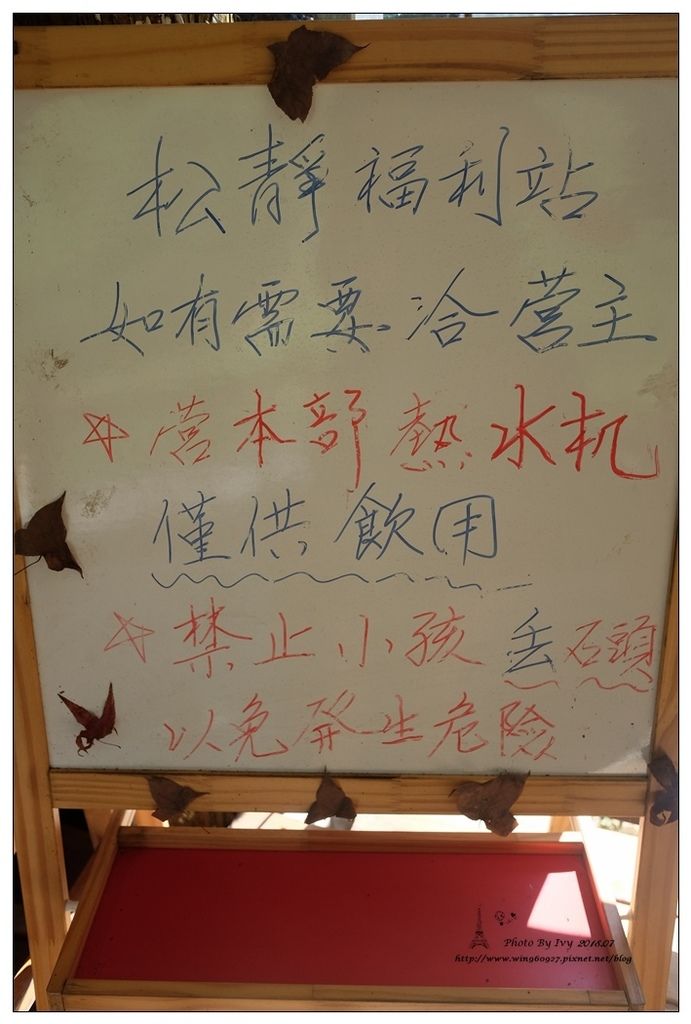 松靜福利站
如有需要洽营主
☆营本部熱水机
僅供飲用
☆禁止小孩丢石頭
以免發生危險
Photo By Ivy 2018.07
http://www.win960927.pixnet.net/blog